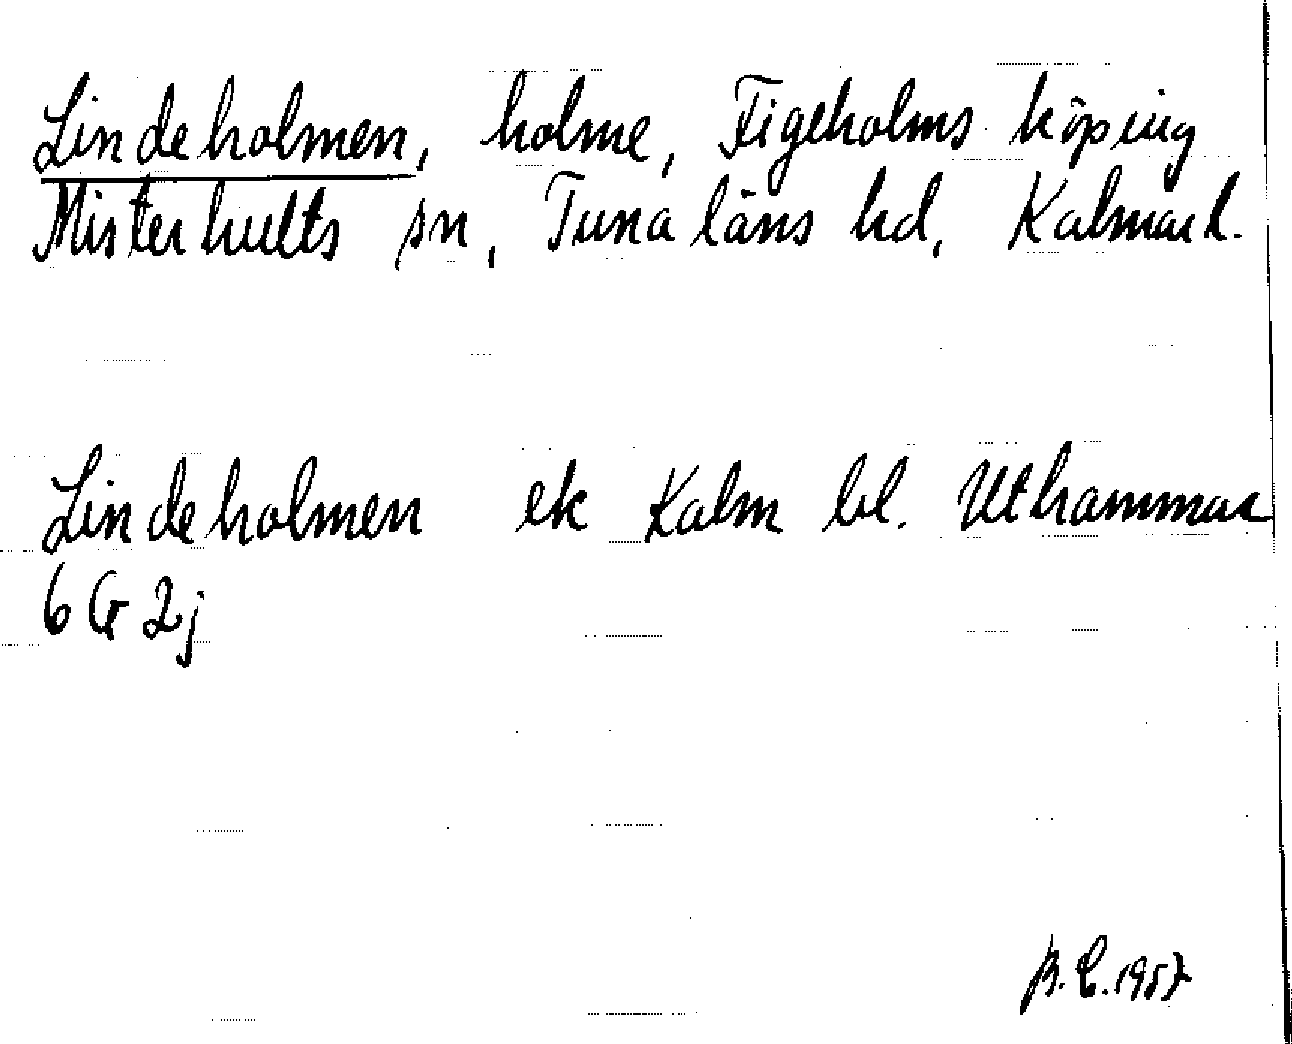 Lindeholmen, holme, Figeholms köping
Misterhults sn, Tuna läns hd, Kalmar l.
Lindeholmen ek Kalm bl. Uthammar
6 G 2j
B.C. 1957